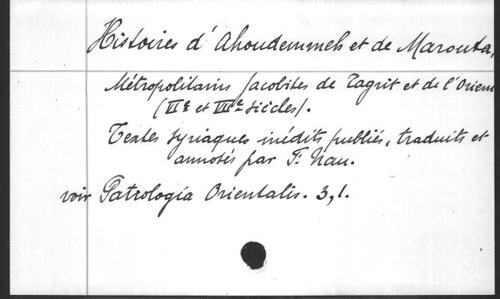 Histoires d'Ahoudemmeh et de Marouta,
Métropolitains Jacobites de Tagrit et de l'Orient
(VIe et VIIe siècles).
Textes syriaques inédits publiés, traduits et
annotés par F. Nau.
voir Patrologia Orientalis. 3,1.